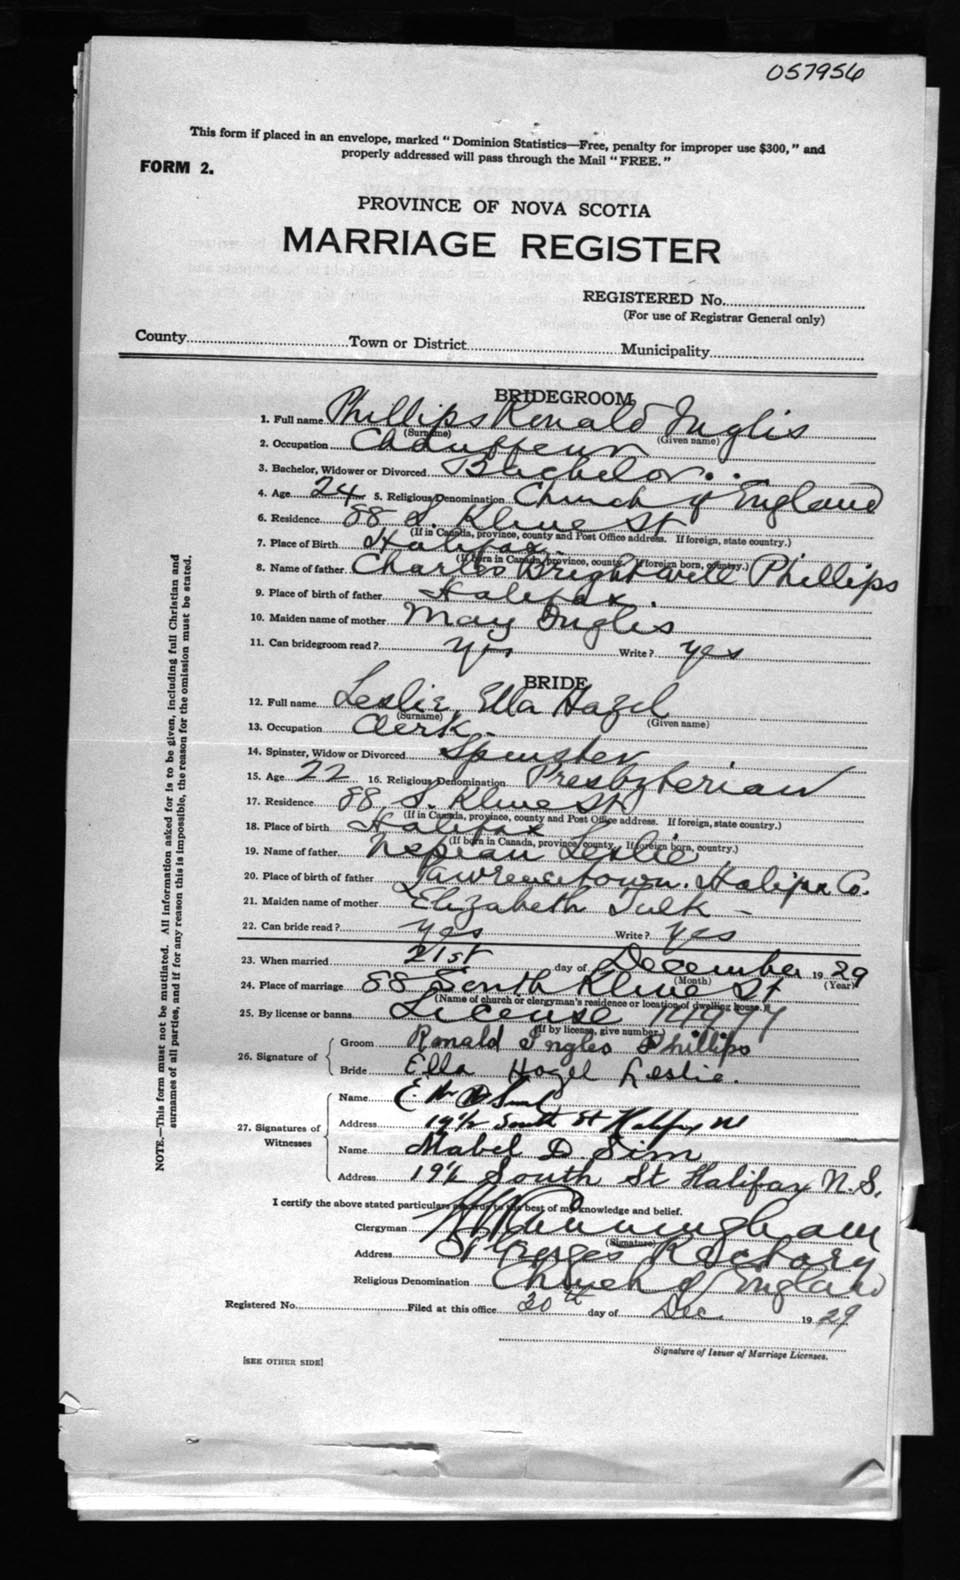 057956
This form if placed in an envelope, marked "Dominion Statistics—Free, penalty for improper use $300," and
properly addressed will pass through the Mail "FREE."
FORM 2.
PROVINCE OF NOVA SCOTIA
MARRIAGE REGISTER
REGISTERED No.
(For use of Registrar General only)
County Town or District Municipality
BRIDEGROOM
1. Full name Phillips Ronald Inglis
(Surname) (Given name)
2. Occupation Chauffeur
3. Bachelor, Widower or Divorced Bachelor
4. Age 24 5. Religious Denomination Church of England
6. Residence 88 S. Kline St
(If in Canada, province, county and Post Office address. If foreign, state country.)
7. Place of Birth Halifax
(If born in Canada, province, county. If foreign born, country.)
8. Name of father Charles Brightwell Phillips
9. Place of birth of father Halifax
10. Maiden name of mother May Inglis
11. Can bridegroom read? yes Write? yes
BRIDE
12. Full name Leslie, Ella Hazel
(Surname) (Given name)
13. Occupation Clerk
14. Spinster, Widow or Divorced Spinster
15. Age 22 16. Religious Denomination Presbyterian
17. Residence 88 S. Kline St
(If in Canada, province, county and Post Office address. If foreign, state country.)
18. Place of birth Halifax
(If born in Canada, province county. If foreign born, country.)
19. Name of father Nepean Leslie
20. Place of birth of father Lawrencetown. Halifax Co.
21. Maiden name of mother Elizabeth Tulk
22. Can bride read? yes Write? yes
23. When married 21st day of December 1929
(Month) (Year)
24. Place of marriage 88 South Kline St
(Name of church or clergyman's residence or location of dwelling house.)
25. By license or banns License
(If by license, give number)
26. Signature of { Groom Ronald Ingles Phillips
Bride Ella Hazel Leslie.
27. Signatures of Witnesses { Name E.
Address 19½ South St Halifax NS
Name Mabel D. Sim
Address 19½ South St Halifax N.S.
I certify the above stated particulars to the best of my knowledge and belief.
Clergyman Cunningham
(Signature)
Address St Georges Rectory
Religious Denomination Church of England
Registered No. Filed at this office 20th day of Dec. 1929
Signature of Issuer of Marriage Licenses.
[SEE OTHER SIDE]
NOTE.—This form must not be mutilated. All information asked for is to be given, including full Christian and
surnames of all parties, and if for any reason this is impossible, the reason for the omission must be stated.